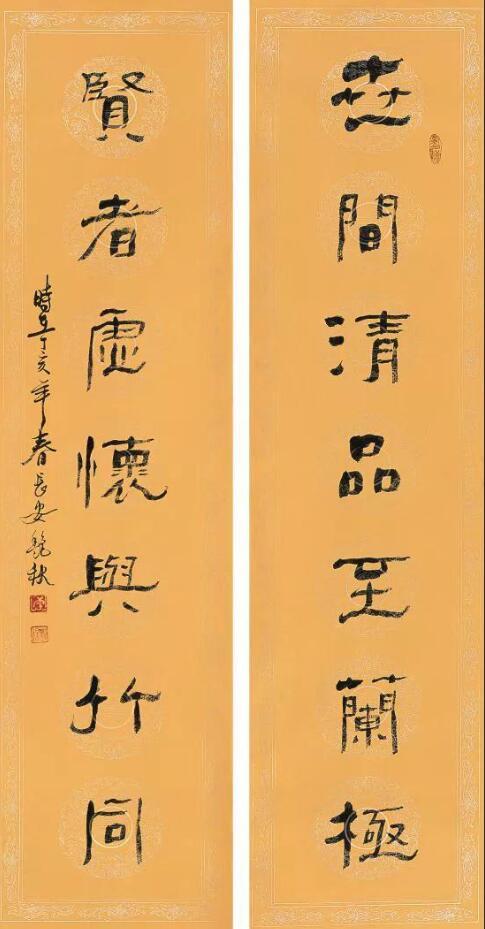 世間清品至蘭極
賢者虛懷與竹同
時在丁亥年春長安秋